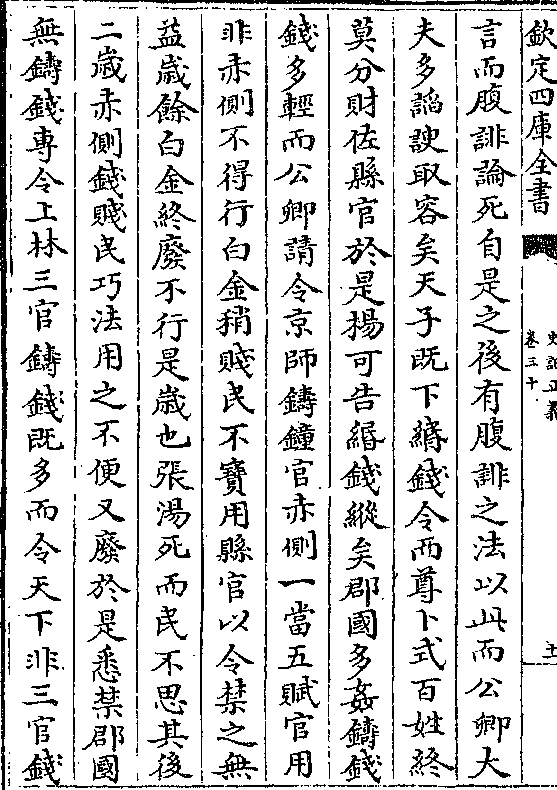 欽定四庫全書
史記正義
卷三十
言而腹誹論死自是之後有腹誹之法以此而公卿大
夫多諂諛取容矣天子既下緡錢令而尊卜式百姓終
莫分財佐縣官於是楊可告緡錢縱矣郡國多姦鑄錢
錢多輕而公卿請令京師鑄鐘官赤側一當五賦官用
非赤側不得行白金稍賤民不寶用縣官以令禁之無
益歳餘白金終廢不行是歳也張湯死而民不思其後
二歳赤側錢賤民巧法用之不便又廢於是悉禁郡國
無鑄錢專令上林三官鑄錢既多而令天下非三官錢